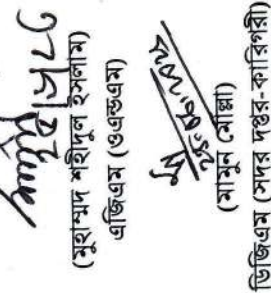 (মুহাম্মদ শহীদুল ইসলাম)
এজিএম (ওএন্ডএম)
(মামুন মোল্লা)
ডিজিএম (সদর দপ্তর-কারিগরী)